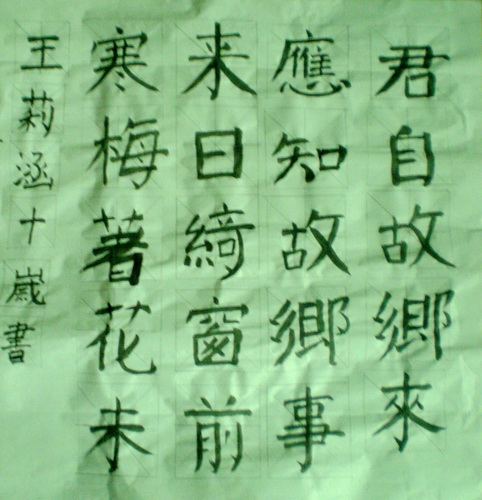 君自故鄉來
應知故鄉事
来日綺窗前
寒梅著花未
王莉涵十歲書